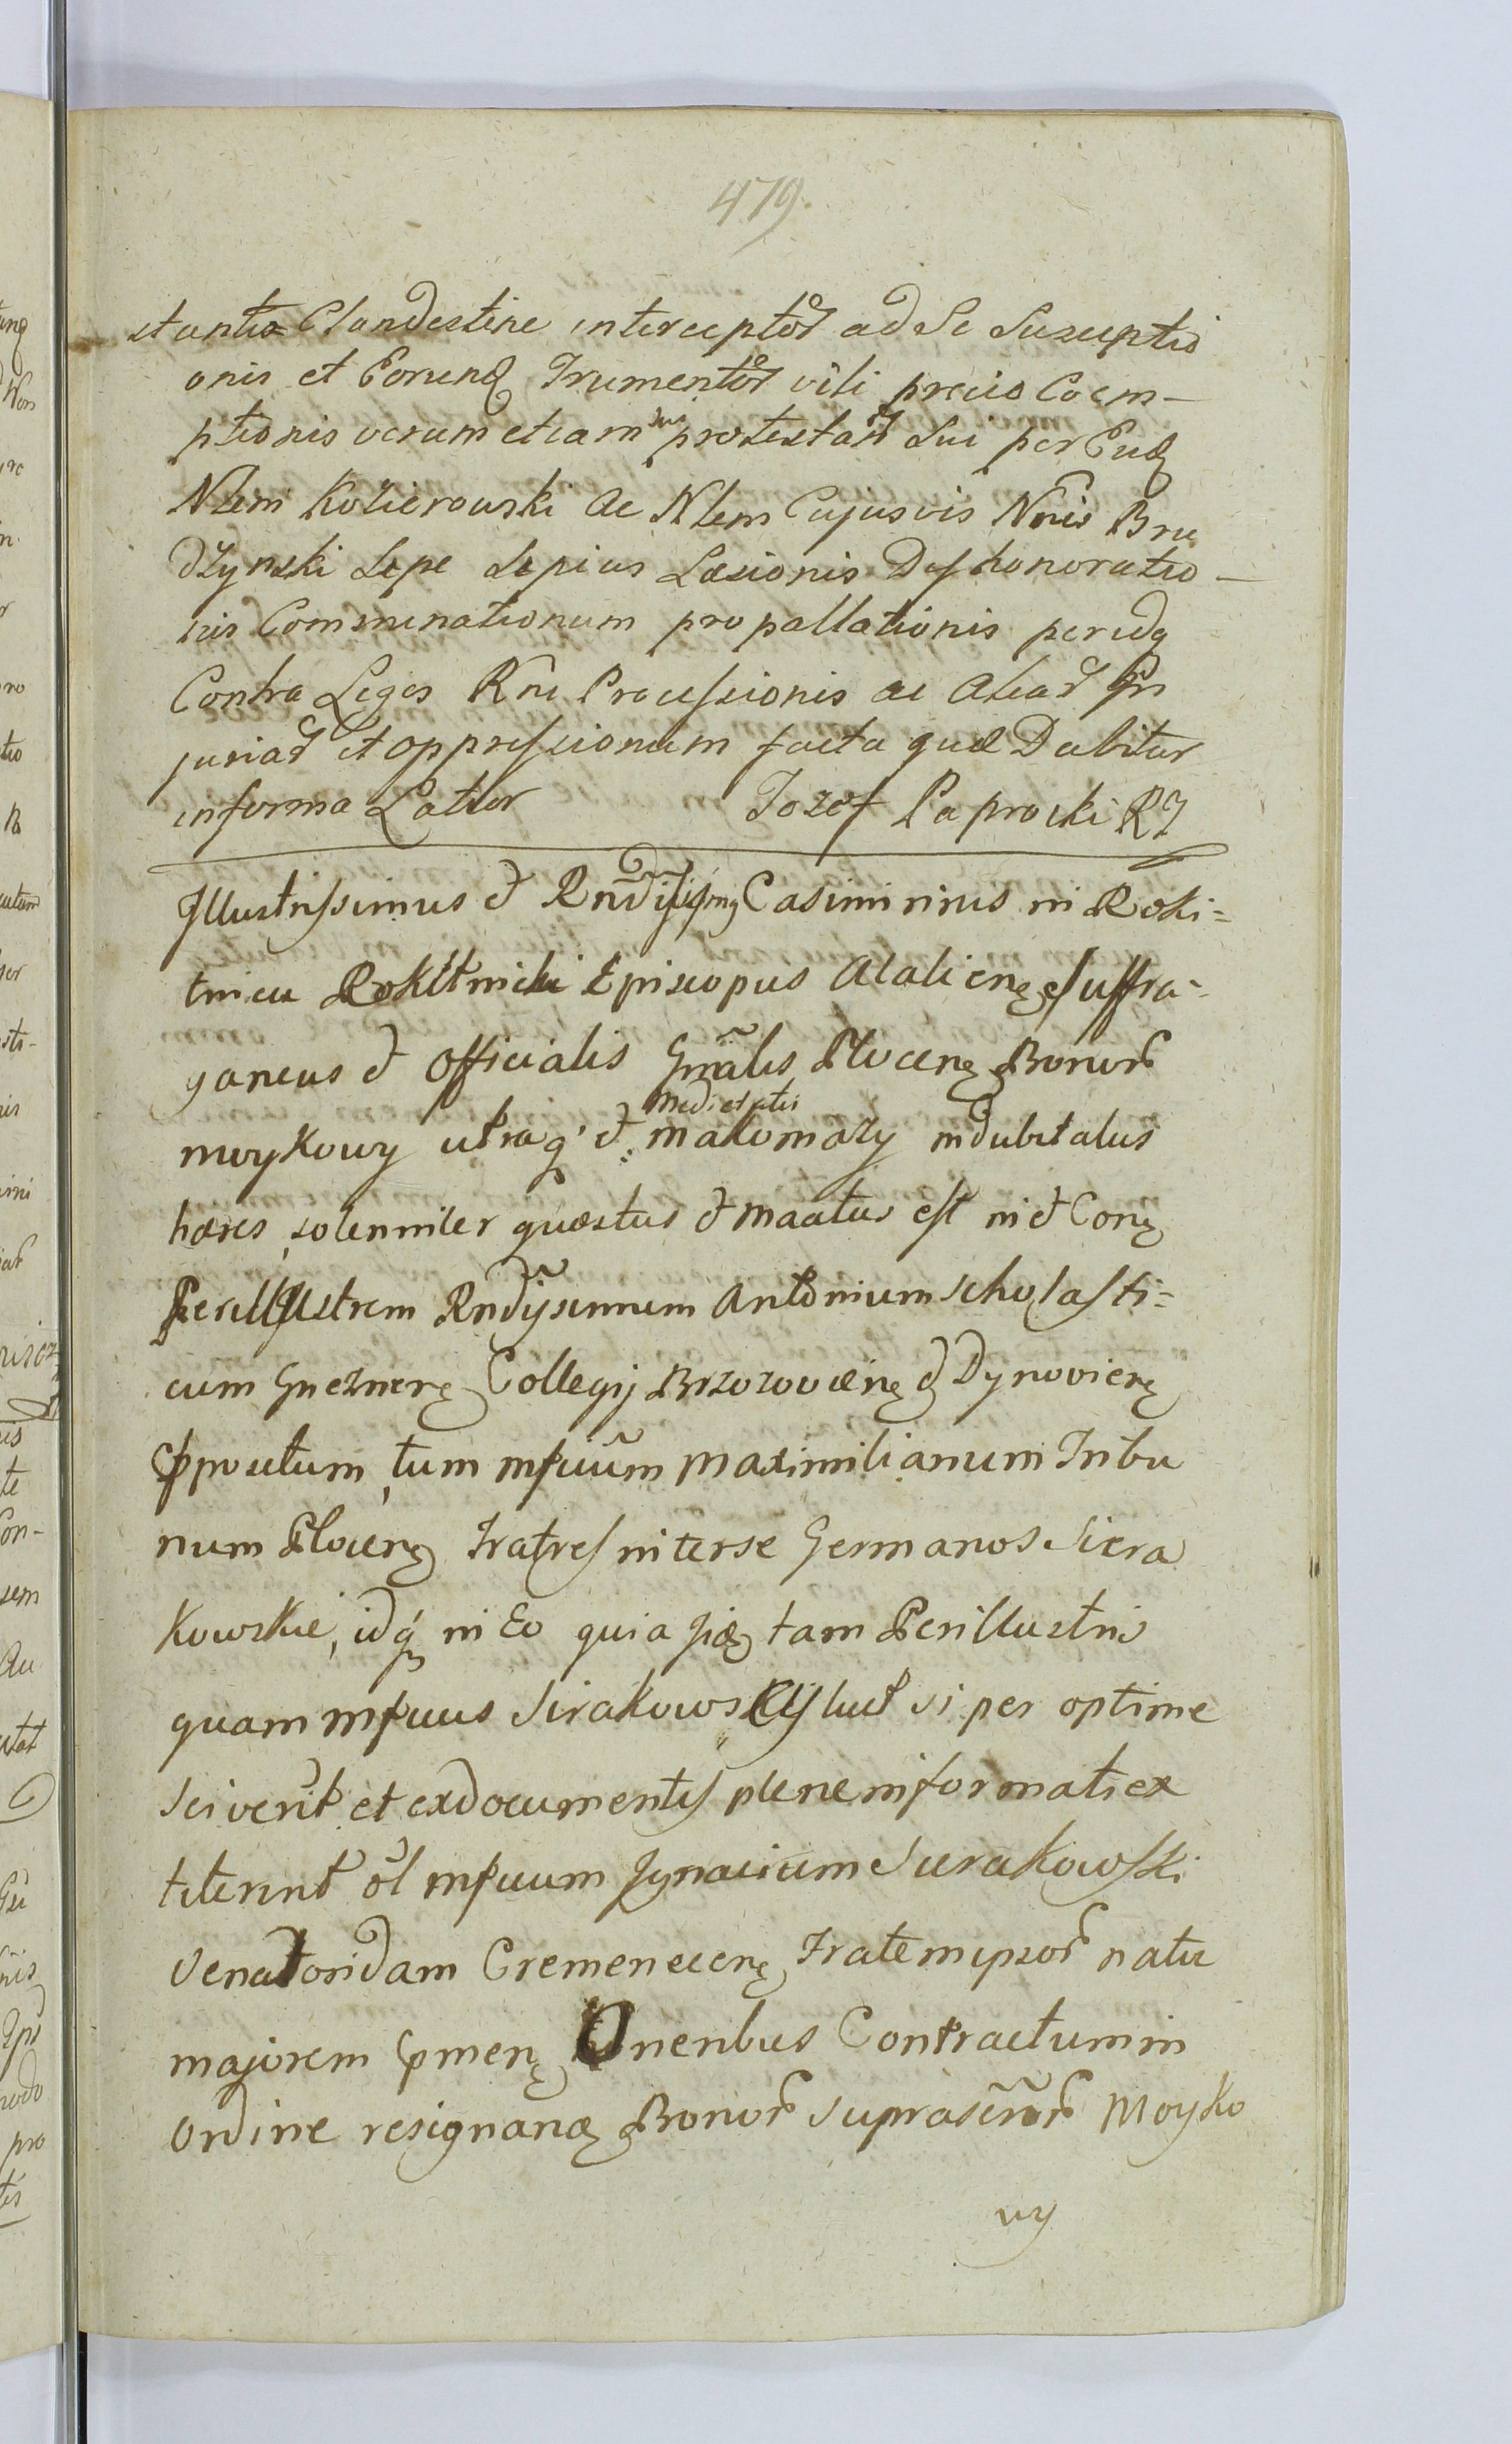 479.
stantia Clandestine interceptor ad Se Susceptio
onis et Eorund Frumentor vili precio Coem-
ptionis verum etiam protestan Sui per Eund
Nlem Kozierowski ac Nlem Cujusvis Nnis Bru
dzynski Sepe Sepius Læsionis Dyshonoratio-
nis Comminationum propallationis peridq
Contra Leges Rni Processionis ac aliar In
juriar et oppressionum facta quæ Dabitur
informa Latior Jozef Paprocki RJ
Illustrissimus et Rndissimus Casimirus in Roki=
tnica Rokitnicki Episcopus Alalien suffra-
ganeus et Officialis Gnalis Plocen Bonor
moykowy utraq et medietatis Makomazy indubitatus
hæres solenniter quæstus et maatus est in et Con
Perillustrem Rndissimum Antonium scholasti=
cum Gneznen Collegij Brzozovien et Dynovien
Ppositum, tum mfcum Maximilianum Tribu
num Plocen Fratres interse Germanos Siera
kowskie, idq in Eo quia jid tam Perillustris
quam mfcus Sirakowscy lut si per optime
sciverit et exdocumentis plene informati ex
titerint ol mfcum Ignacium Sierakowski
Venatoridam Cremenecen Fratem ipsor natu
majorem Pmen Oneribus Contractum in
ordine resignand Bonor suprascrior Moyko
wy